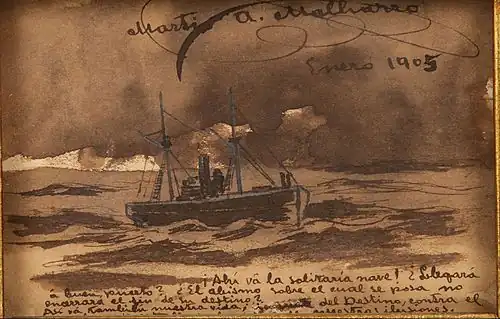 Martín A. Malharro
Enero 1905
¡Ahi vá la solitaria nave! ¿Llegará
á buen puerto? ¿El abismo sobre el cual se posa no
encerrará el fin de su destino?
Así vá, también nuestra vida, del Destino, contra el
nuestras ilusiones.